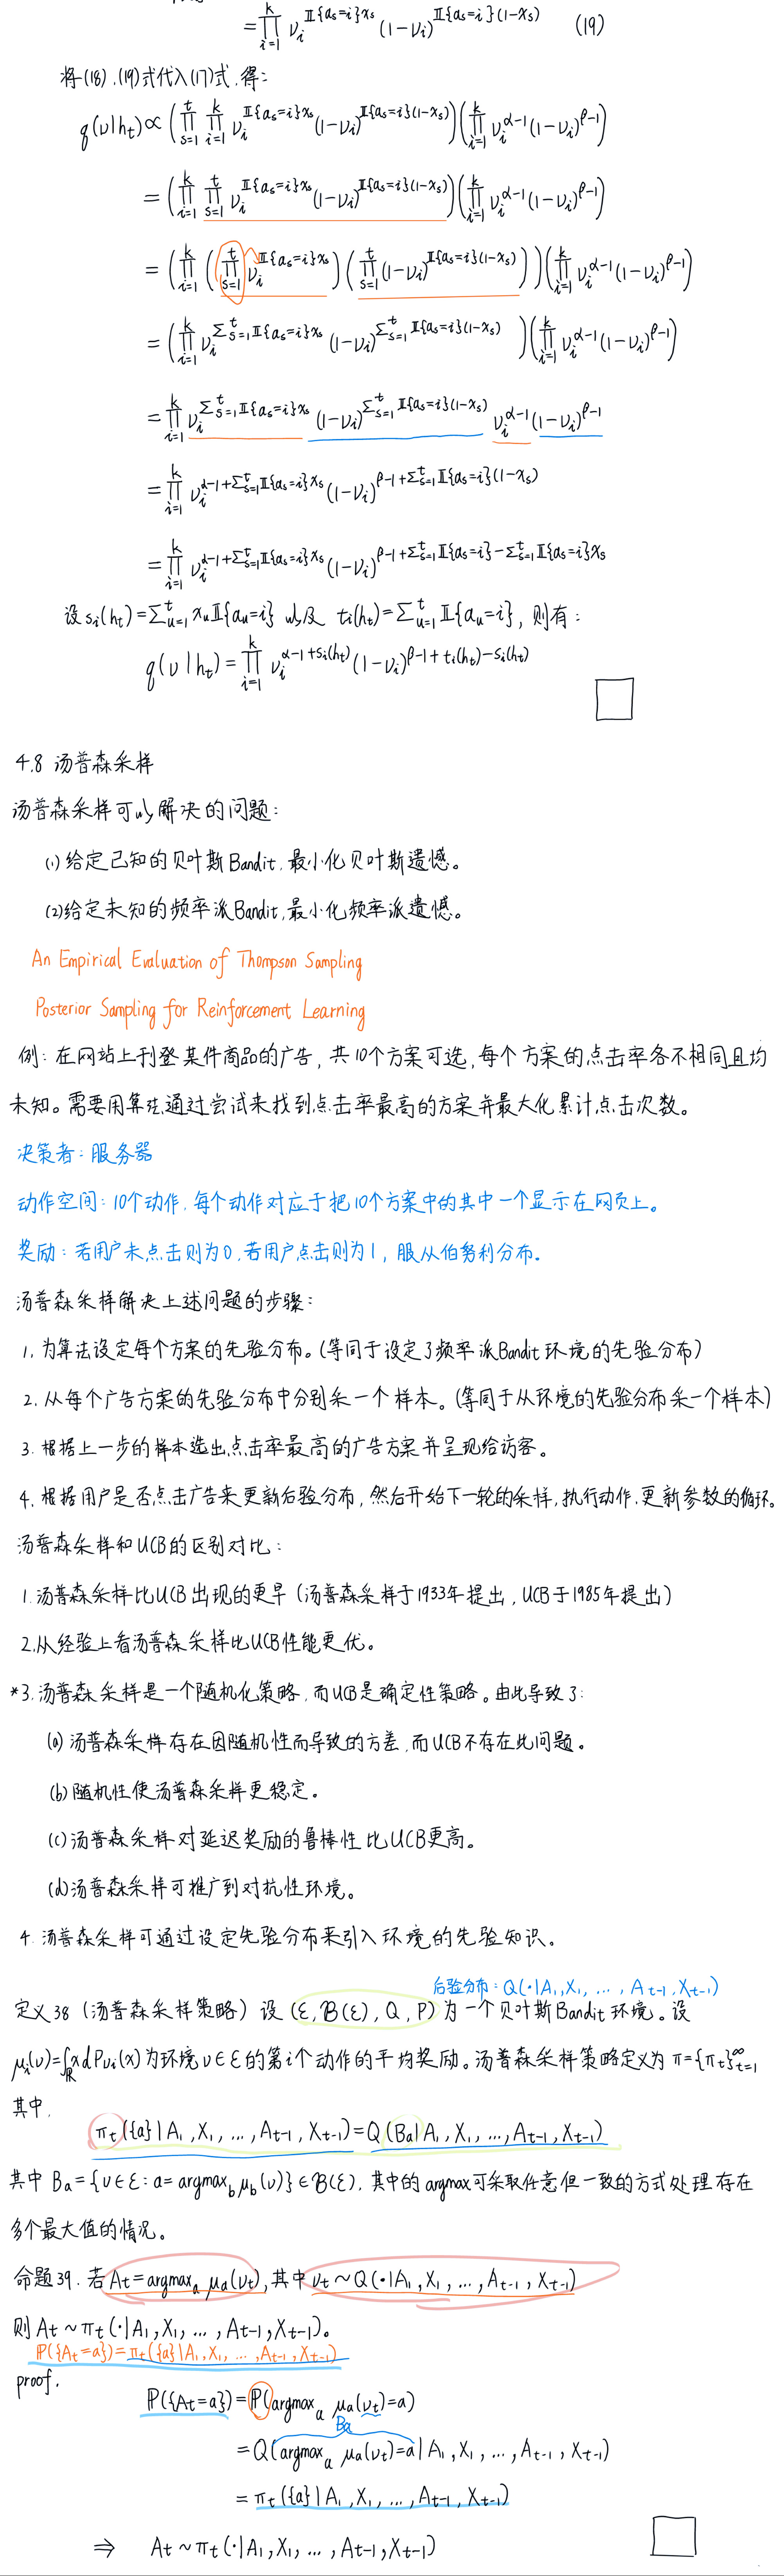 =∏_{i=1}^{k} ν_i^{𝕀{a_s=i}x_s} (1-ν_i)^{𝕀{a_s=i}(1-x_s)} (19)
将(18),(19)式代入(17)式,得:
q(ν|h_t) ∝ (∏_{s=1}^{t} ∏_{i=1}^{k} ν_i^{𝕀{a_s=i}x_s} (1-ν_i)^{𝕀{a_s=i}(1-x_s)}) (∏_{i=1}^{k} ν_i^{α-1} (1-ν_i)^{β-1})
= (∏_{i=1}^{k} ∏_{s=1}^{t} ν_i^{𝕀{a_s=i}x_s} (1-ν_i)^{𝕀{a_s=i}(1-x_s)}) (∏_{i=1}^{k} ν_i^{α-1} (1-ν_i)^{β-1})
= (∏_{i=1}^{k} (∏_{s=1}^{t} ν_i^{𝕀{a_s=i}x_s}) (∏_{s=1}^{t} (1-ν_i)^{𝕀{a_s=i}(1-x_s)})) (∏_{i=1}^{k} ν_i^{α-1} (1-ν_i)^{β-1})
= (∏_{i=1}^{k} ν_i^{∑_{s=1}^{t} 𝕀{a_s=i}x_s} (1-ν_i)^{∑_{s=1}^{t} 𝕀{a_s=i}(1-x_s)}) (∏_{i=1}^{k} ν_i^{α-1} (1-ν_i)^{β-1})
= ∏_{i=1}^{k} ν_i^{∑_{s=1}^{t} 𝕀{a_s=i}x_s} (1-ν_i)^{∑_{s=1}^{t} 𝕀{a_s=i}(1-x_s)} ν_i^{α-1} (1-ν_i)^{β-1}
= ∏_{i=1}^{k} ν_i^{α-1+∑_{s=1}^{t} 𝕀{a_s=i}x_s} (1-ν_i)^{β-1+∑_{s=1}^{t} 𝕀{a_s=i}(1-x_s)}
= ∏_{i=1}^{k} ν_i^{α-1+∑_{s=1}^{t} 𝕀{a_s=i}x_s} (1-ν_i)^{β-1+∑_{s=1}^{t} 𝕀{a_s=i}-∑_{s=1}^{t} 𝕀{a_s=i}x_s}
设 s_i(h_t)=∑_{u=1}^{t} x_u 𝕀{a_u=i} 以及 t_i(h_t)=∑_{u=1}^{t} 𝕀{a_u=i}, 则有:
q(ν|h_t) = ∏_{i=1}^{k} ν_i^{α-1+s_i(h_t)} (1-ν_i)^{β-1+t_i(h_t)-s_i(h_t)}
4.8 汤普森采样
汤普森采样可以解决的问题:
(1)给定已知的贝叶斯Bandit,最小化贝叶斯遗憾。
(2)给定未知的频率派Bandit,最小化频率派遗憾。
An Empirical Evaluation of Thompson Sampling
Posterior Sampling for Reinforcement Learning
例: 在网站上刊登某件商品的广告, 共10个方案可选, 每个方案的点击率各不相同且均
未知。需要用算法通过尝试来找到点击率最高的方案并最大化累计点击次数。
决策者: 服务器
动作空间: 10个动作, 每个动作对应于把10个方案中的其中一个显示在网页上。
奖励: 若用户未点击则为0,若用户点击则为1, 服从伯努利分布.
汤普森采样解决上述问题的步骤:
1. 为算法设定每个方案的先验分布。(等同于设定了频率派Bandit环境的先验分布)
2. 从每个广告方案的先验分布中分别采一个样本。(等同于从环境的先验分布采一个样本)
3. 根据上一步的样本选出点击率最高的广告方案并呈现给访客。
4. 根据用户是否点击广告来更新后验分布, 然后开始下一轮的采样,执行动作,更新参数的循环。
汤普森采样和UCB的区别对比:
1. 汤普森采样比UCB出现的更早 (汤普森采样于1933年提出, UCB于1985年提出)
2.从经验上看汤普森采样比UCB性能更优。
*3.汤普森采样是一个随机化策略,而UCB是确定性策略。由此导致了:
(a) 汤普森采样存在因随机性而导致的方差,而UCB不存在此问题。
(b)随机性使汤普森采样更稳定。
(c)汤普森采样对延迟奖励的鲁棒性比UCB更高。
(d)汤普森采样可推广到对抗性环境。
4. 汤普森采样可通过设定先验分布来引入环境的先验知识。
后验分布: Q(·|A_1,X_1, ..., A_{t-1},X_{t-1})
定义38 (汤普森采样策略) 设 (ℰ,𝓑(ℰ),Q,P)为一个贝叶斯Bandit环境。设
μ_i(ν)=∫_ℝ x dP_{νi}(x)为环境ν∈ℰ的第i个动作的平均奖励。汤普森采样策略定义为 π={π_t}_{t=1}^{∞}
其中,
π_t({a}|A_1,X_1, ..., A_{t-1},X_{t-1})=Q(B_a|A_1,X_1, ..., A_{t-1},X_{t-1})
其中 B_a={ν∈ℰ:a=argmax_b μ_b(ν)}∈𝓑(ℰ), 其中的argmax可采取任意但一致的方式处理存在
多个最大值的情况。
命题39. 若 A_t=argmax_a μ_a(ν_t),其中 ν_t~Q(·|A_1,X_1, ..., A_{t-1},X_{t-1})
则 A_t~π_t(·|A_1,X_1, ..., A_{t-1},X_{t-1})。
ℙ({A_t=a})=π_t({a}|A_1,X_1, ..., A_{t-1},X_{t-1})
proof.
ℙ({A_t=a})=ℙ(argmax_a μ_a(ν_t)=a)
B_a
=Q(argmax_a μ_a(ν_t)=a|A_1,X_1, ..., A_{t-1},X_{t-1})
= π_t({a}|A_1,X_1, ..., A_{t-1},X_{t-1})
⇒ A_t~π_t(·|A_1,X_1, ..., A_{t-1},X_{t-1})